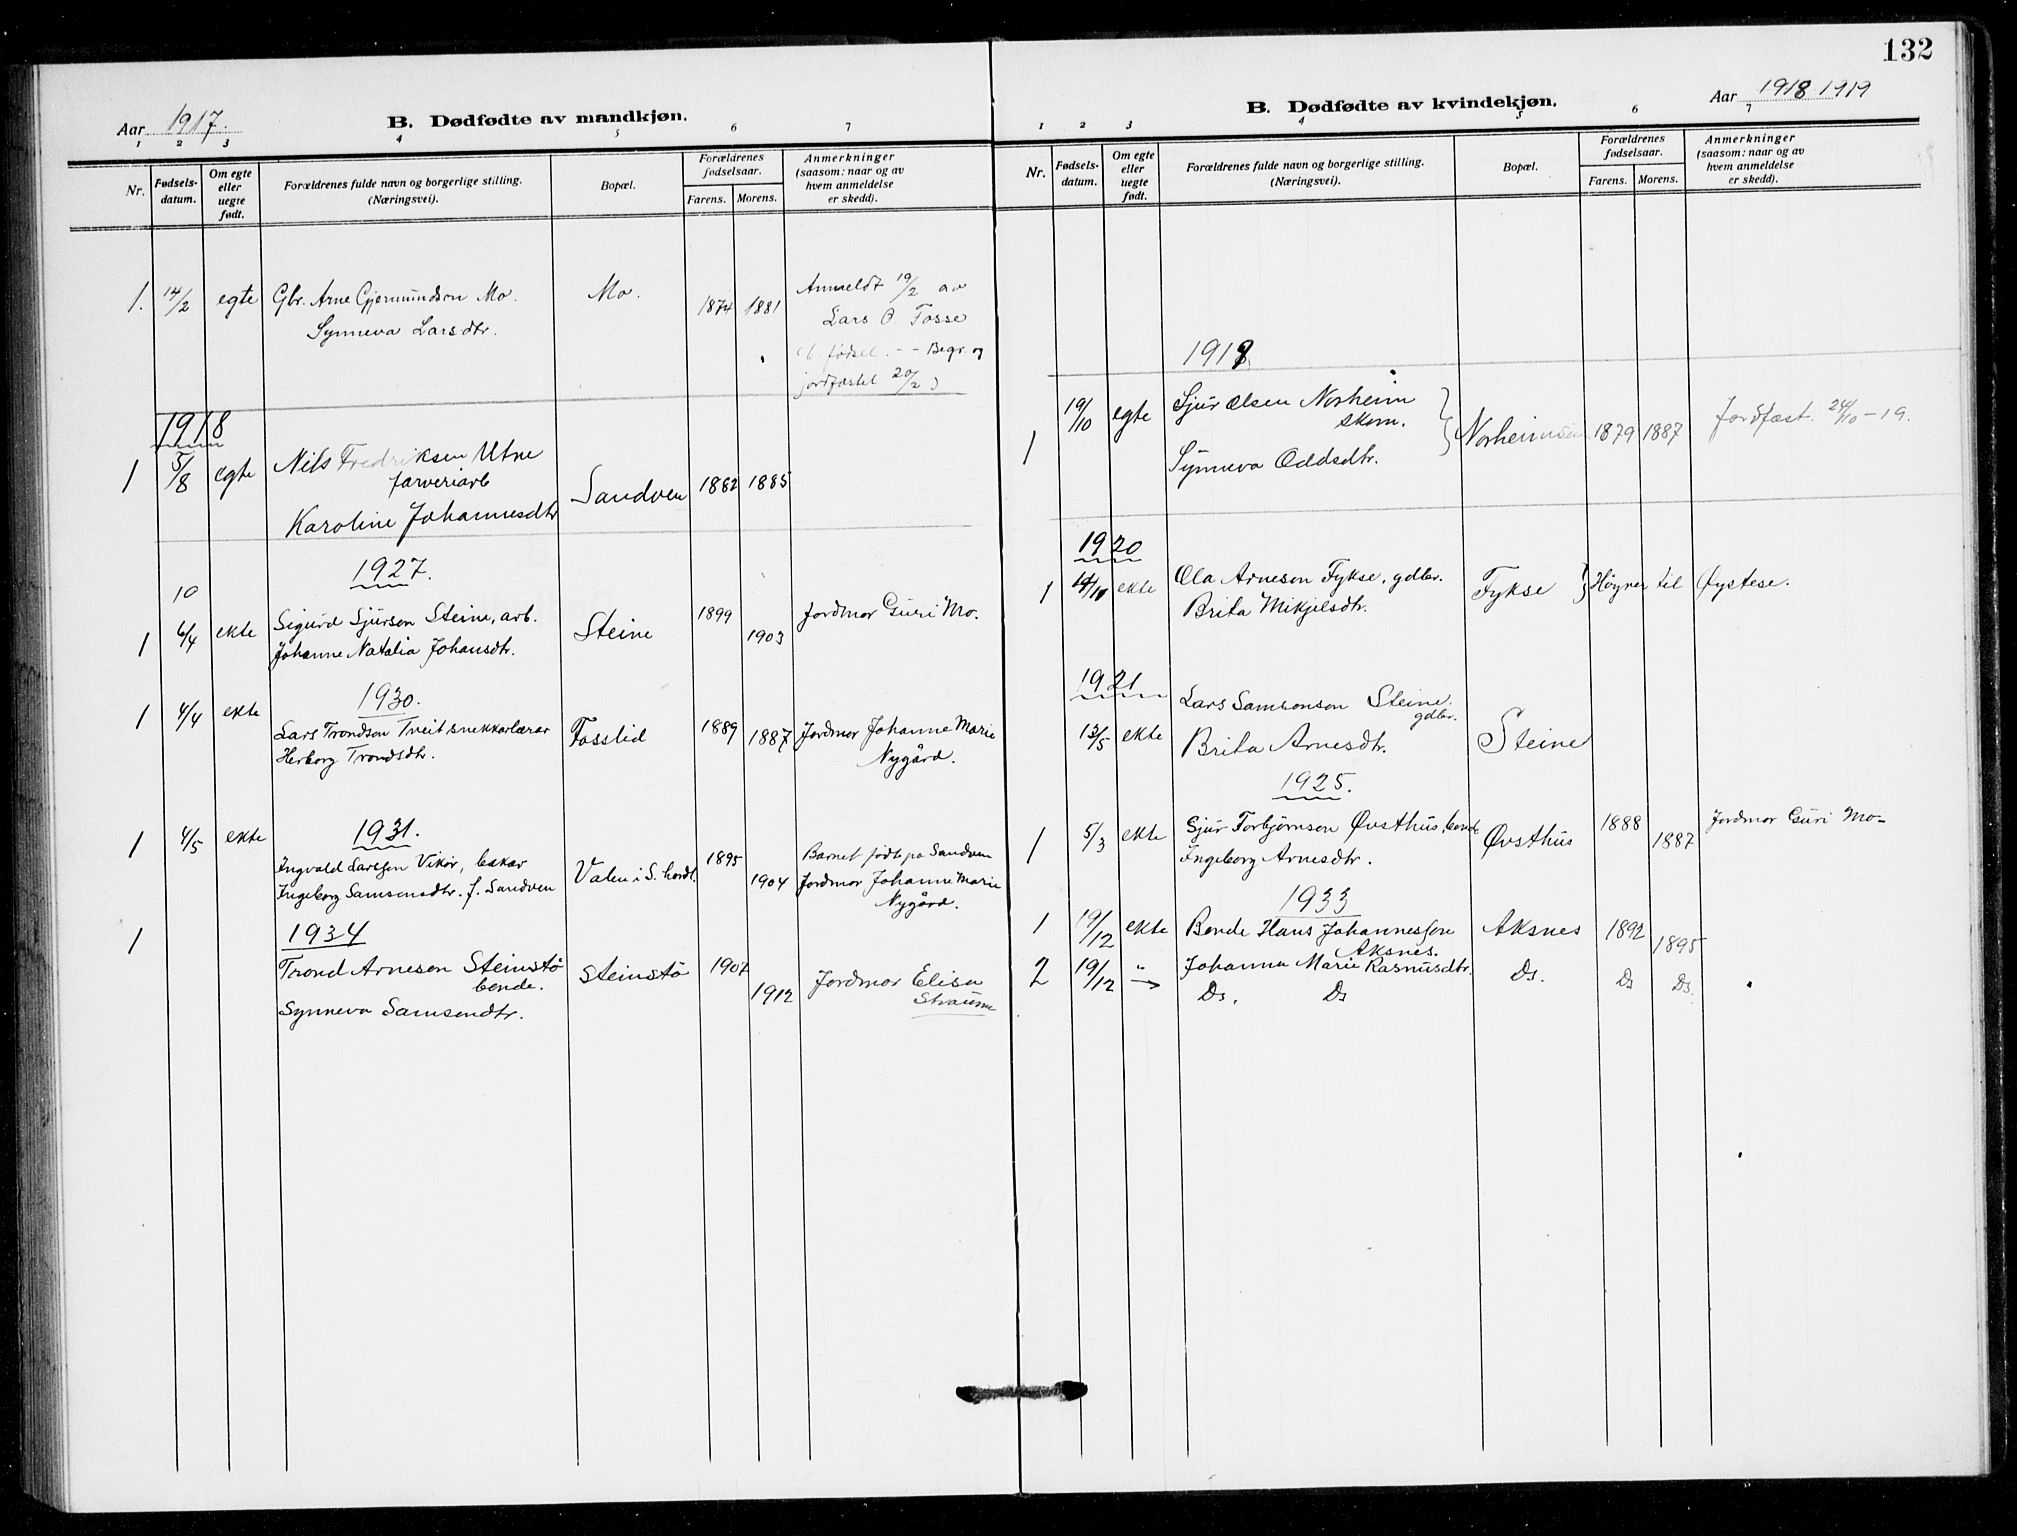 132
Aar 1917.
B. Dødfødte av mandkjøn.
1 2 3 4 5 6 7
Nr.
Fødsels-
datum.
Om egte
eller
uegte
født.
Forældrenes fulde navn og borgerlige stilling.
(Næringsvei).
Bopæl.
Forældrenes
fødselsaar.
Farens. Morens.
Anmerkninger
(saasom: naar og av
hvem anmeldelse
er skedd).
1. 14/2 egte Gbr. Arne Gjermundsen Mo. Mo. 1874 1881 Anmeldt 19/2 av
Synneva Larsdtr. Lars O. Fosse
fødsel. -- Begr. og
jordfæstet 20/2)
1918
1 5/8 egte Nils Fredriksen Utne
farveriarb
Karoline Johannesdtr Sandven 1882 1885
1927.
10
1 6/4 ekte Sigurd Sjursen Steine, arb. Steine 1899 1903 Jordmor Guri Mo.
Johanne Natalia Johansdtr.
1930.
1 4/4 ekte Lars Trondson Tveit snekkarlærar Fosslid 1889 1887 Jordmor Johanne Marie
Herborg Trondsdtr. Nygård.
1931.
1 4/5 ekte Ingvald Larsson Vikør, bakar Valen i S. hordl. 1895 1904 Barnet født på Sandven
Ingeborg Samsonsdtr. f. Sandven Jordmor Johanne Marie
Nygård.
1934
1 Trond Arneson Steinstø Steinstø 1907 1912 Jordmor Elisa
bonde. Straume
Synneva Samsondtr.
Aar 1918 1919
B. Dødfødte av kvindekjøn.
1 2 3 4 5 6 7
Nr.
Fødsels-
datum.
Om egte
eller
uegte
født.
Forældrenes fulde navn og borgerlige stilling.
(Næringsvei).
Bopæl.
Forældrenes
fødselsaar.
Farens. Morens.
Anmerkninger
(saasom: naar og av
hvem anmeldelse
er skedd).
1919
1 19/10 egte Sjur Olsen Norheim
skom.
Synneva Oddsdtr. Norheimsun 1879 1887 Jordfæst. 24/10 - 19.
1920
1 14/11 ekte Ola Arneson Fykse, gdbr. Fykse } Høyrer til Øystese.
Brita Mikjelsdtr.
1921
Lars Samsonson Steine.
gdbr.
13/5 ekte Brita Arnesdtr. Steine
1925.
1 5/3 ekte Sjur Torbjørnson Øvsthus, bonde Øvsthus 1888 1887 Jordmor Guri Mo-
Ingeborg Arnesdtr.
1933
1 19/12 ekte Bonde Hans Johannesson Aksnes 1892 1895
Aksnes.
Johanna Marie Rasmusdtr.
2 19/12 " Ds. Ds Ds. Ds Ds.